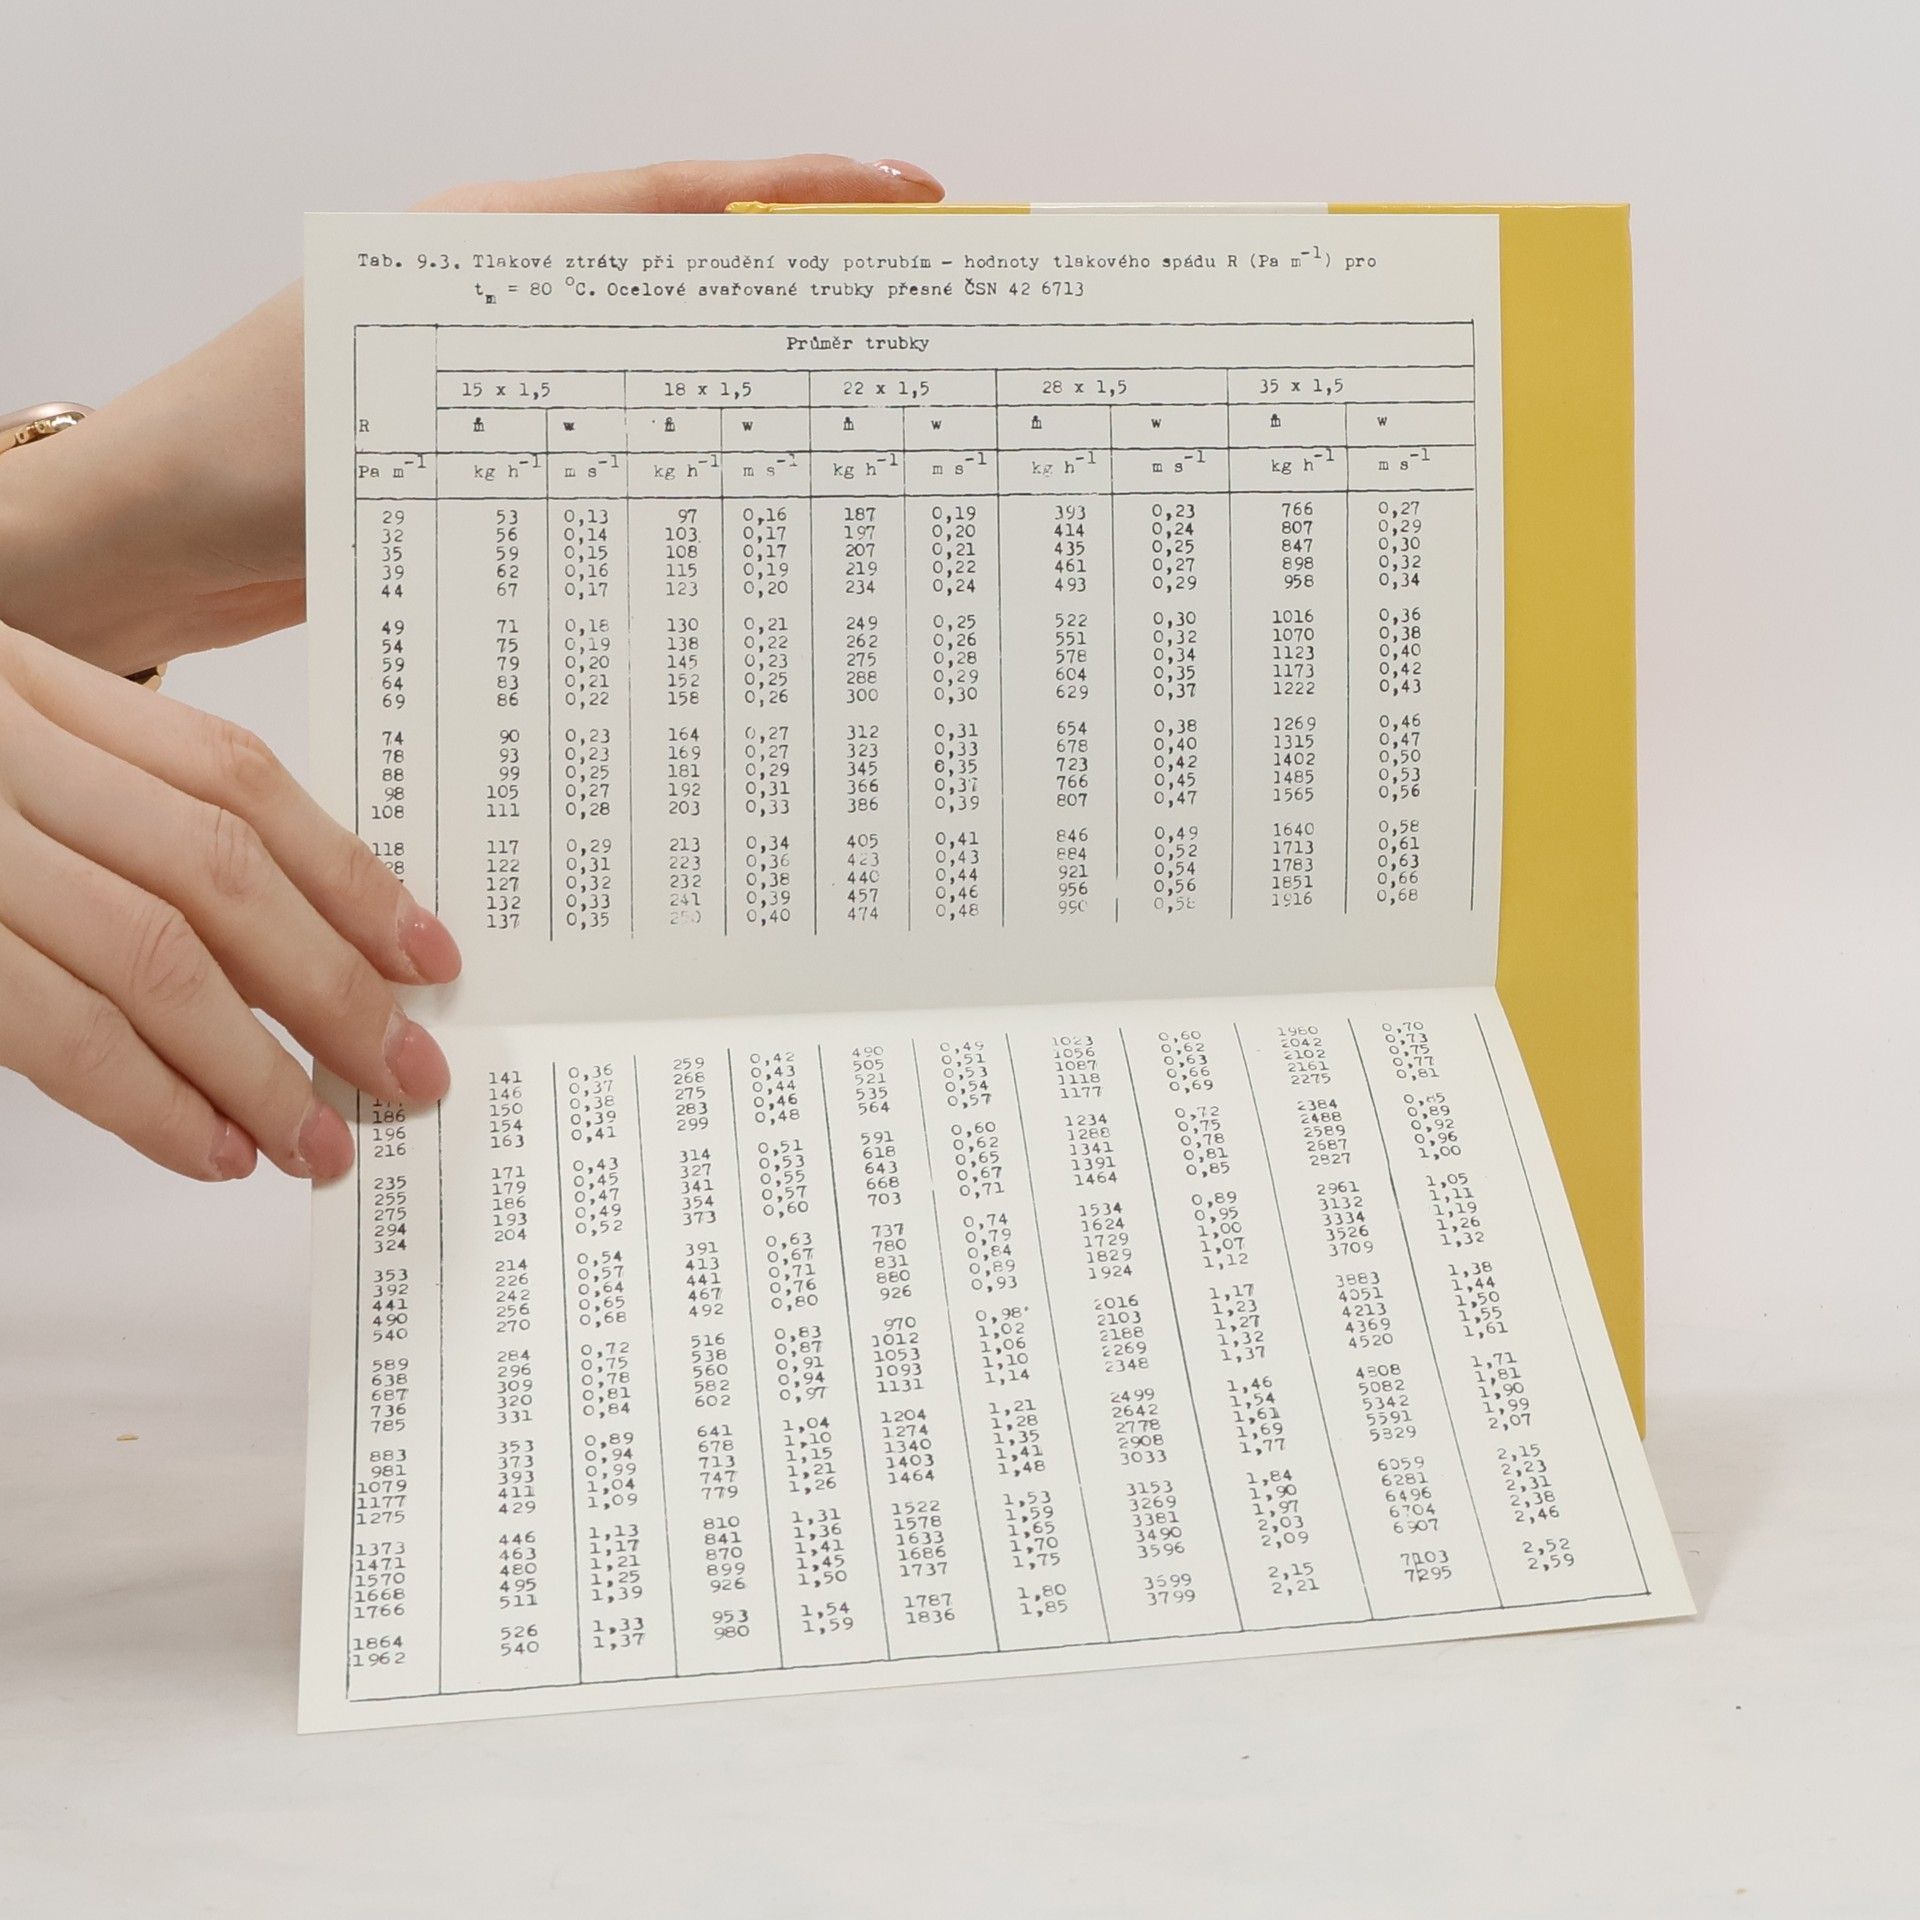 Tab. 9.3. Tlakové ztráty při proudění vody potrubím – hodnoty tlakového spádu R (Pa m⁻¹) pro
tₘ = 80 °C. Ocelové svařované trubky přesné ČSN 42 6713
Průměr trubky
15 x 1,5 18 x 1,5 22 x 1,5 28 x 1,5 35 x 1,5
R ṁ w ṁ w ṁ w ṁ w ṁ w
Pa m⁻¹ kg h⁻¹ m s⁻¹ kg h⁻¹ m s⁻¹ kg h⁻¹ m s⁻¹ kg h⁻¹ m s⁻¹ kg h⁻¹ m s⁻¹
29 53 0,13 97 0,16 187 0,19 393 0,23 766 0,27
32 56 0,14 103 0,17 197 0,20 414 0,24 807 0,29
35 59 0,15 108 0,17 207 0,21 435 0,25 847 0,30
39 62 0,16 115 0,19 219 0,22 461 0,27 898 0,32
44 67 0,17 123 0,20 234 0,24 493 0,29 958 0,34
49 71 0,18 130 0,21 249 0,25 522 0,30 1016 0,36
54 75 0,19 138 0,22 262 0,26 551 0,32 1070 0,38
59 79 0,20 145 0,23 275 0,28 578 0,34 1123 0,40
64 83 0,21 152 0,25 288 0,29 604 0,35 1173 0,42
69 86 0,22 158 0,26 300 0,30 629 0,37 1222 0,43
74 90 0,23 164 0,27 312 0,31 654 0,38 1269 0,46
78 93 0,23 169 0,27 323 0,33 678 0,40 1315 0,47
88 99 0,25 181 0,29 345 0,35 723 0,42 1402 0,50
98 105 0,27 192 0,31 366 0,37 766 0,45 1485 0,53
108 111 0,28 203 0,33 386 0,39 807 0,47 1565 0,56
118 117 0,29 213 0,34 405 0,41 846 0,49 1640 0,58
122 0,31 223 0,36 423 0,43 884 0,52 1713 0,61
127 0,32 232 0,38 440 0,44 921 0,54 1783 0,63
132 0,33 241 0,39 457 0,46 956 0,56 1851 0,66
137 0,35 250 0,40 474 0,48 990 0,58 1916 0,68
141 0,36 259 0,42 490 0,49 1023 0,60 1980 0,70
146 0,37 268 0,43 505 0,51 1056 0,62 2042 0,73
186 150 0,38 275 0,44 521 0,53 1087 0,63 2102 0,75
196 154 0,39 283 0,46 535 0,54 1118 0,66 2161 0,77
216 163 0,41 299 0,48 564 0,57 1177 0,69 2275 0,81
235 171 0,43 314 0,51 591 0,60 1234 0,72 2384 0,85
255 179 0,45 327 0,53 618 0,62 1288 0,75 2488 0,89
275 186 0,47 341 0,55 643 0,65 1341 0,78 2589 0,92
294 193 0,49 354 0,57 668 0,67 1391 0,81 2687 0,96
324 204 0,52 373 0,60 703 0,71 1464 0,85 2827 1,00
353 214 0,54 391 0,63 737 0,74 1534 0,89 2961 1,05
392 226 0,57 413 0,67 780 0,79 1624 0,95 3132 1,11
441 242 0,64 441 0,71 831 0,84 1729 1,00 3334 1,19
490 256 0,65 467 0,76 880 0,89 1829 1,07 3526 1,26
540 270 0,68 492 0,80 926 0,93 1924 1,12 3709 1,32
589 284 0,72 516 0,83 970 0,98 2016 1,17 3883 1,38
638 296 0,75 538 0,87 1012 1,02 2103 1,23 4051 1,44
687 309 0,78 560 0,91 1053 1,06 2188 1,27 4213 1,50
736 320 0,81 582 0,94 1093 1,10 2269 1,32 4369 1,55
785 331 0,84 602 0,97 1131 1,14 2348 1,37 4520 1,61
883 353 0,89 641 1,04 1204 1,21 2499 1,46 4808 1,71
981 373 0,94 678 1,10 1274 1,28 2642 1,54 5082 1,81
1079 393 0,99 713 1,15 1340 1,35 2778 1,61 5342 1,90
1177 411 1,04 747 1,21 1403 1,41 2908 1,69 5591 1,99
1275 429 1,09 779 1,26 1464 1,48 3033 1,77 5829 2,07
1373 446 1,13 810 1,31 1522 1,53 3153 1,84 6059 2,15
1471 463 1,17 841 1,36 1578 1,59 3269 1,90 6281 2,23
1570 480 1,21 870 1,41 1633 1,65 3381 1,97 6496 2,31
1668 495 1,25 899 1,45 1686 1,70 3490 2,03 6704 2,38
1766 511 1,39 926 1,50 1737 1,75 3596 2,09 6907 2,46
1864 526 1,33 953 1,54 1787 1,80 3699 2,15 7103 2,52
1962 540 1,37 980 1,59 1836 1,85 3799 2,21 7295 2,59